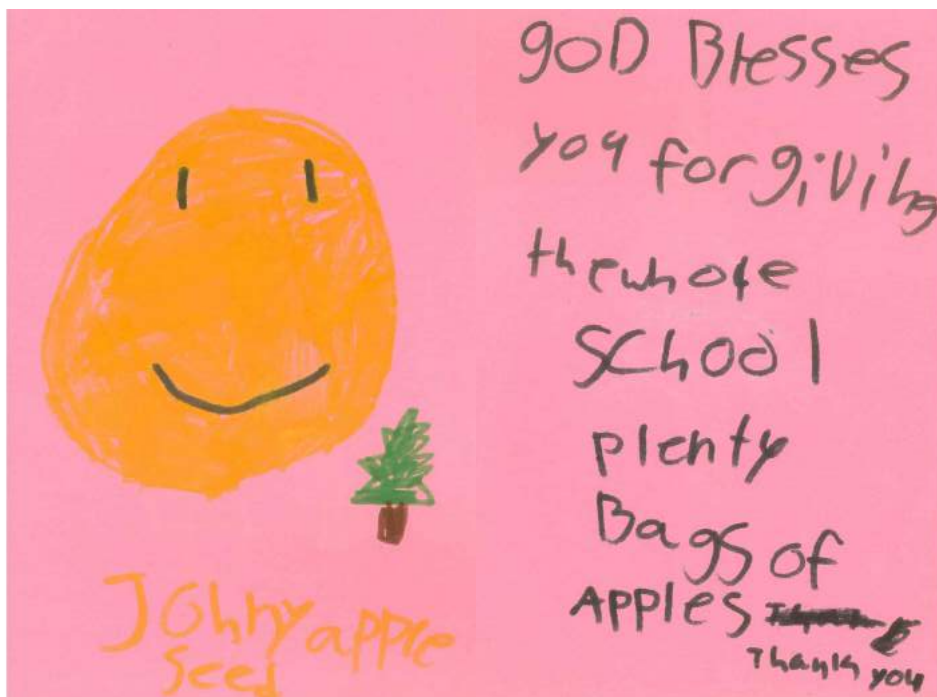 Johny apple
Seed
goD Blesses
you for giving
the whole
School
plenty
Bags of
Apples
Thank you